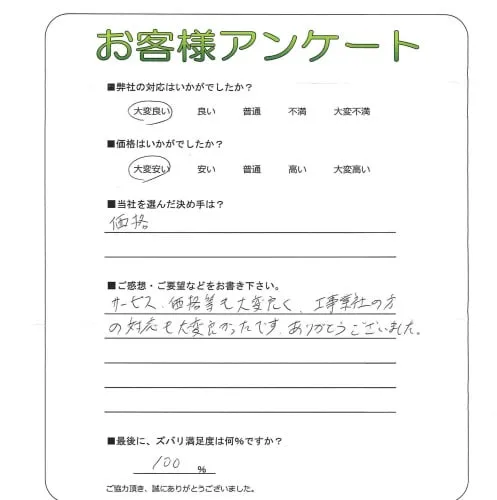 お客様アンケート
■弊社の対応はいかがでしたか？
大変良い 良い 普通 不満 大変不満
■価格はいかがでしたか？
大変安い 安い 普通 高い 大変高い
■当社を選んだ決め手は？
価格
■ご感想・ご要望などをお書き下さい。
サービス、価格等も大変良く、工事業社の方
の対応も大変良かったです。ありがとうございました。
■最後に、ズバリ満足度は何%ですか？
100 %
ご協力頂き、誠にありがとうございました。